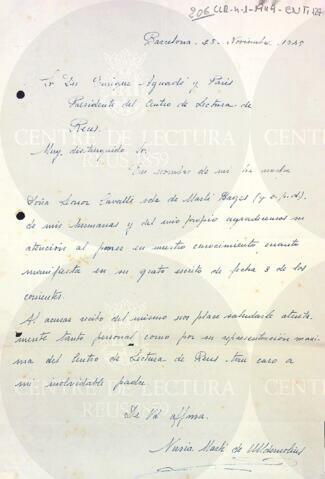 Barcelona, 25 Noviembre, 1959
Sr Dn Enrique Aguadé y Parés
Presidente del Centro de Lectura de
Reus.
Muy distinguido Sr.
En nombre de mi Sra madre
Doña Leonor Cavallé vda de Martí Bages (q.e.p.d.)
de mis hermanas y del mio propio agradecemos su
atención al poner en nuestro conocimiento cuanto
manifiesta en su grato escrito de fecha 3 de los
corrientes.
Al acusar recibo del mismo nos place saludarle atenta
mente tanto personal como por su representación maxi-
ma del Centro de Lectura de Reus, tan caro a
mi inolvidable padre
De Vd affma.
Nuria Martí de Ulldemolins
CENTRE DE LECTURA
REUS 1859